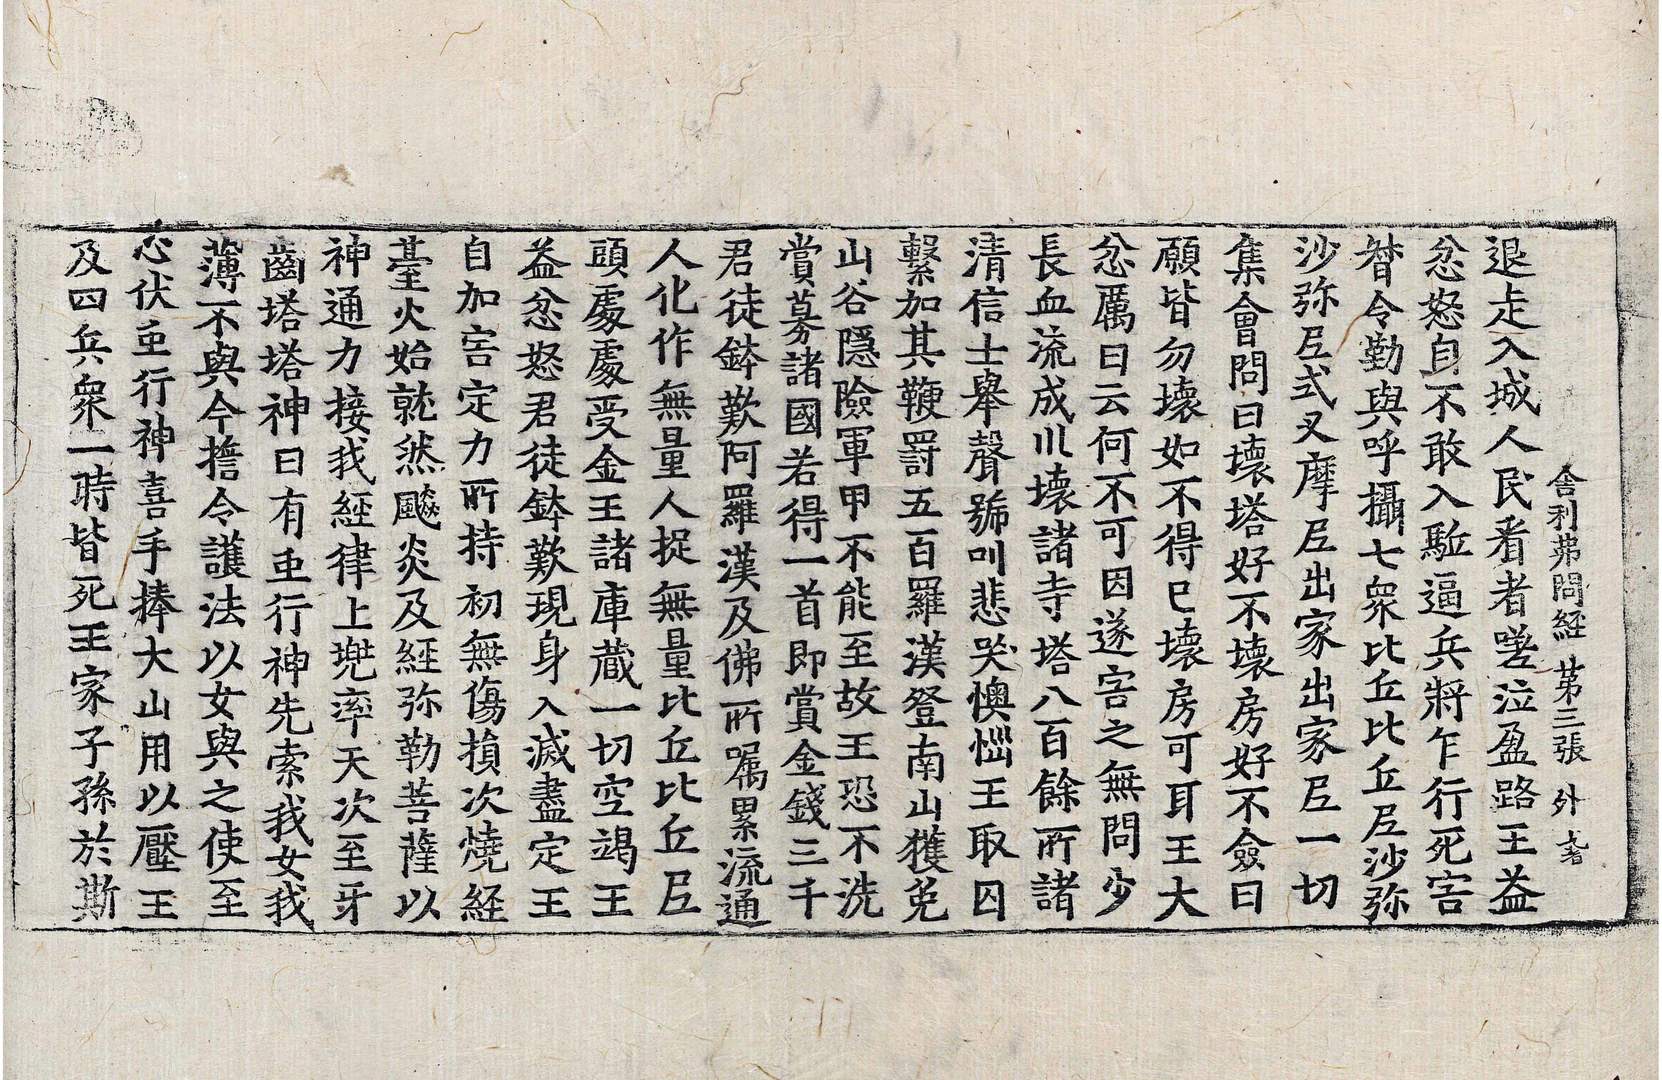 舍利弗問經 第三張 外
退走入城人民看者嗟泣盈路王益
忿怒自不敢入駈逼兵將乍行死害
督令勤與呼攝七衆比丘比丘尼沙弥
沙弥尼式叉摩尼出家出家尼一切
集會問曰壞塔好不壞房好不僉曰
願皆勿壞如不得已壞房可耳王大
忿厲曰云何不可因遂害之無問少
長血流成川壞諸寺塔八百餘所諸
清信士舉聲號叫悲哭懊惱王取囚
繫加其鞭罰五百羅漢登南山獲免
山谷隱險軍甲不能至故王恐不洗
賞募諸國若得一首即賞金錢三千
君徒鉢歎阿羅漢及佛所嘱累流通
人化作無量人捉無量比丘比丘尼
頭處處受金王諸庫藏一切空竭王
益忿怒君徒鉢歎現身入滅盡定王
自加害定力所持初無傷損次燒經
臺火始就然飈炎及經弥勒菩薩以
神通力接我經律上兜率天次至牙
齒塔塔神曰有虫行神先索我女我
薄不與今擔令護法以女與之使至
心伏虫行神喜手捧大山用以壓王
及四兵衆一時皆死王家子孫於斯